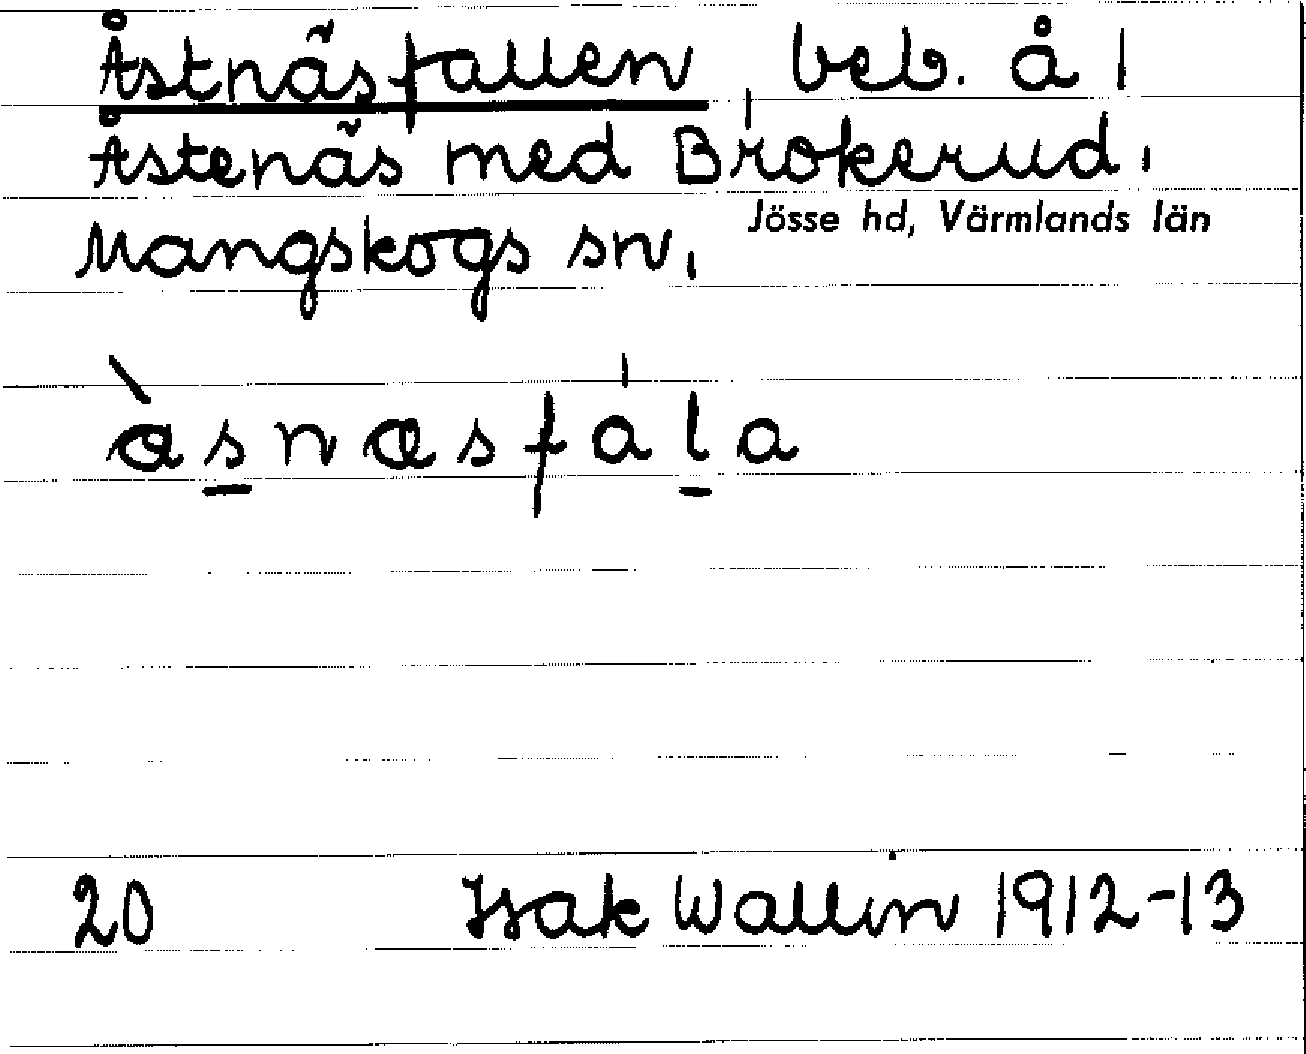 Åstnäsfallen, beb. å 1
Åstenäs med Brokerud.
Jösse hd, Värmlands län
Mangskogs sn.
20 Isak Wallin 1912-13